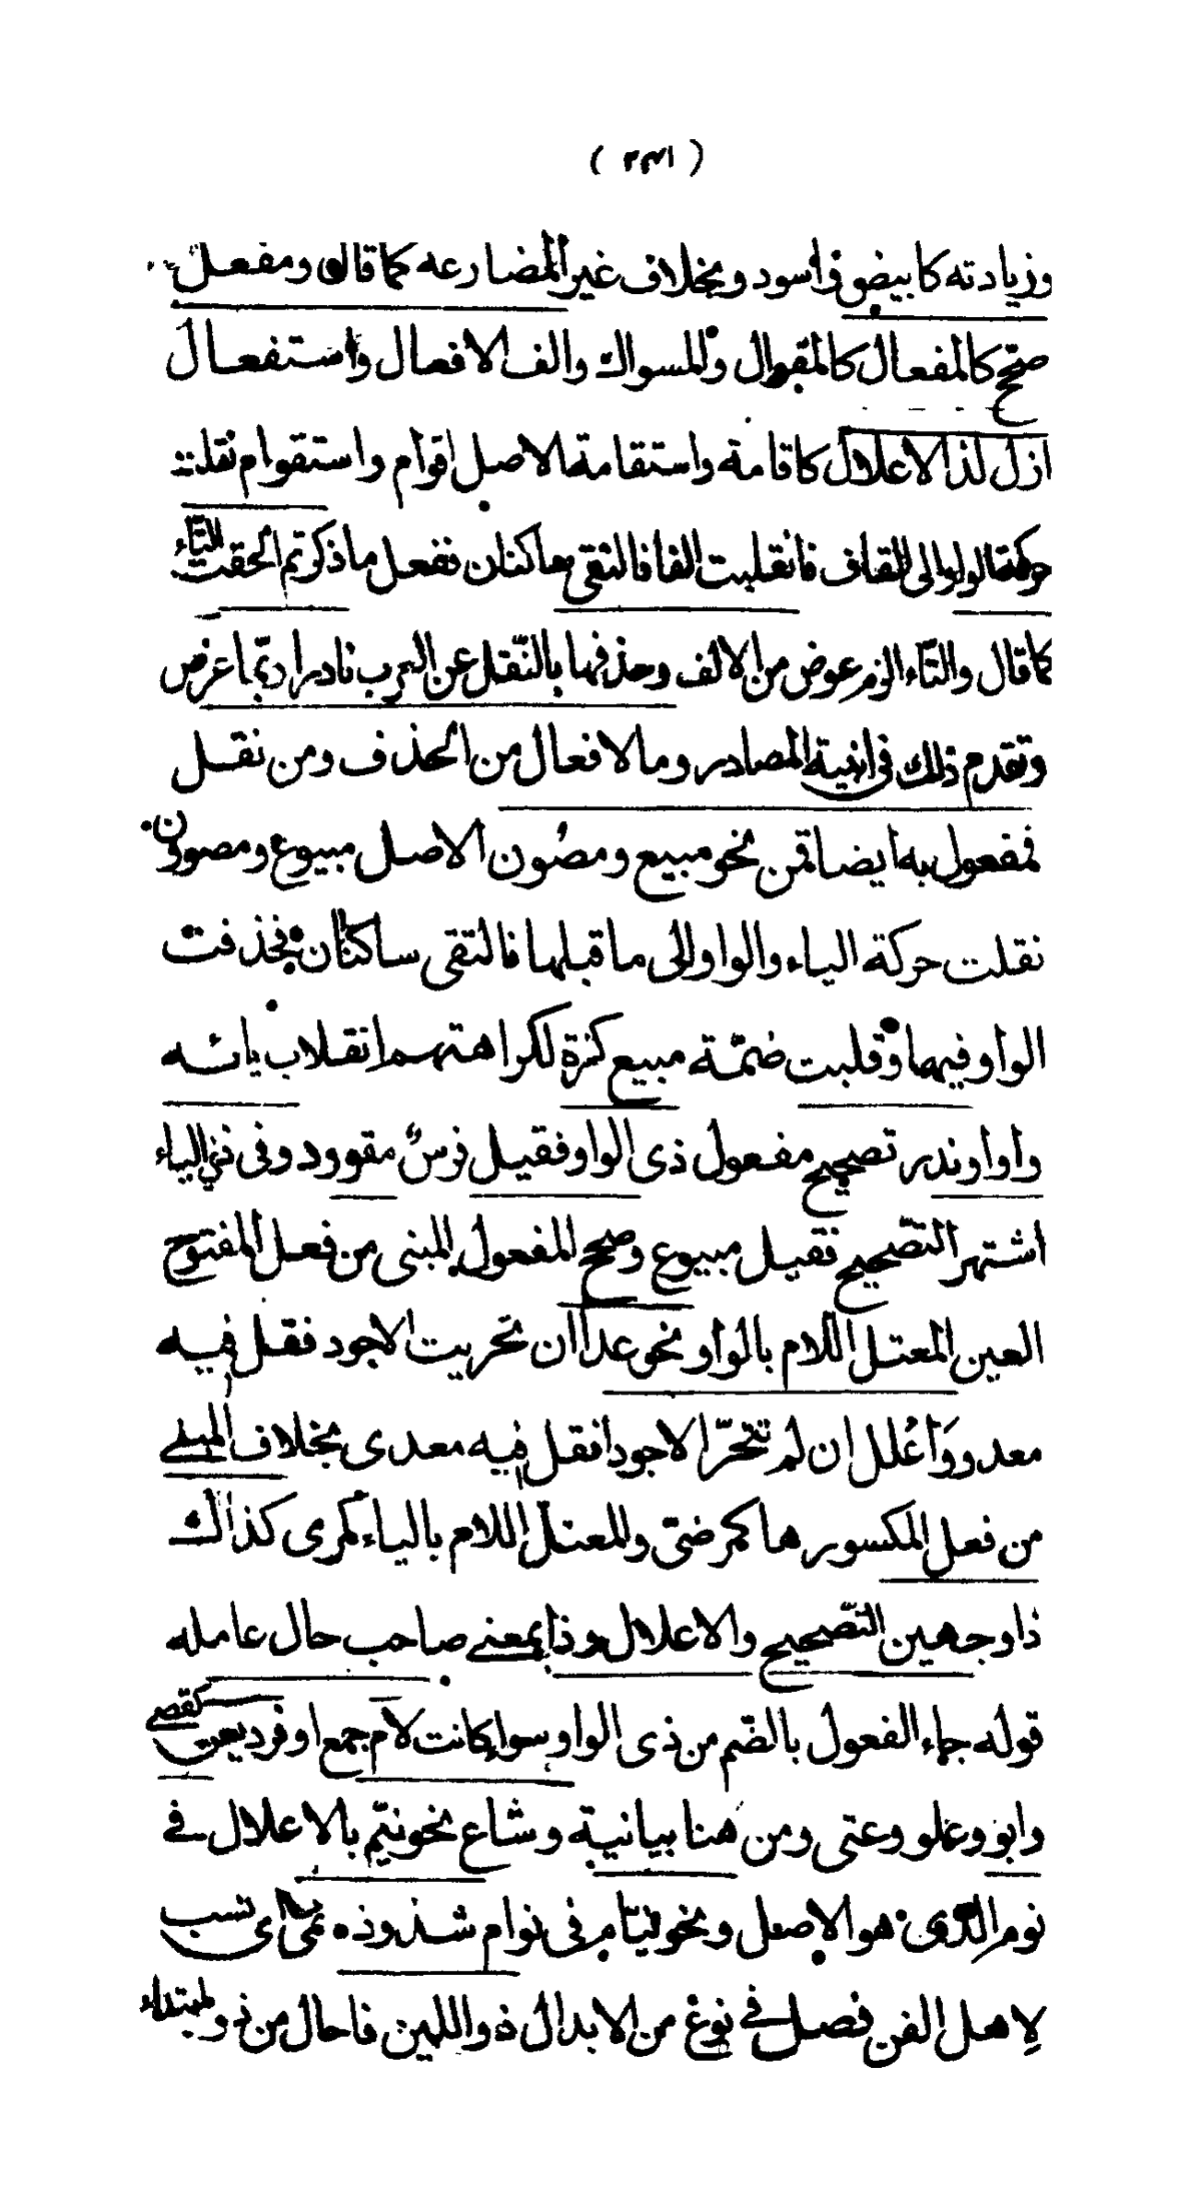 ( ٢٣١ )
وزيادته كابيض واسود وبخلاف غير المضارعه كما قال ومفعل
صحح كالمفعال كالمقوال والمسواك والف الافعال واستفعال
ازل لذا الاعلال كاقامة واستقامة الاصل اقوام واستقوام نقلت
حركة الواو الى القاف فانقلبت الفا فالتقى ساكنان ففعل ما ذكر ثم الحقت التاء
كما قال والتاء الزم عوض من الالف وحذفها بالنقل عن العرب نادرا ربما عرض
وتقدم ذلك فى ابنية المصادر وما لافعال من الحذف ومن نقل
فمفعول به ايضا قمن نحو مبيع ومصون الاصل مبيوع ومصوون
نقلت حركة الياء والواو الى ما قبلها فالتقى ساكنان فحذفت
الواو فيهما وقلبت ضمّة مبيع كسرة لكراهتهم انقلاب يائه
واوا وندر تصحيح مفعول ذى الواو فقيل فرس مقوود وفى ذى الياء
اشتهر التصحيح فقيل مبيوع وصحح المفعول المبنى من فعل المفتوح
العين المعتل اللام بالواو نحو عدا ان تحريت الاجود فقل فيه
معدو وَأعْلل ان لم تتحرّ الاجودا فقل فيه معدى بخلاف المبنى
من فعل المكسورها كمرضىّ والمعتل اللام بالياء كمرمى كذاك
ذا وجهين التصحيح والاعلال وذا بمعنى صاحب حال عامله
قوله جاء الفعول بالضم من ذى الواو سواء كانت لام جمع او فرد يعن كعصى
وابو وعلو وعتى ومن هنا بيانية وشاع نحو نيّم بالاعلال فى
نوم الذى هو الاصل ونحو نيّام فى نوام شذوذه نمى اى نسب
لاهل الفن فصل فى نوع من الابدال ذو اللين فا حال من ذو مبتداء